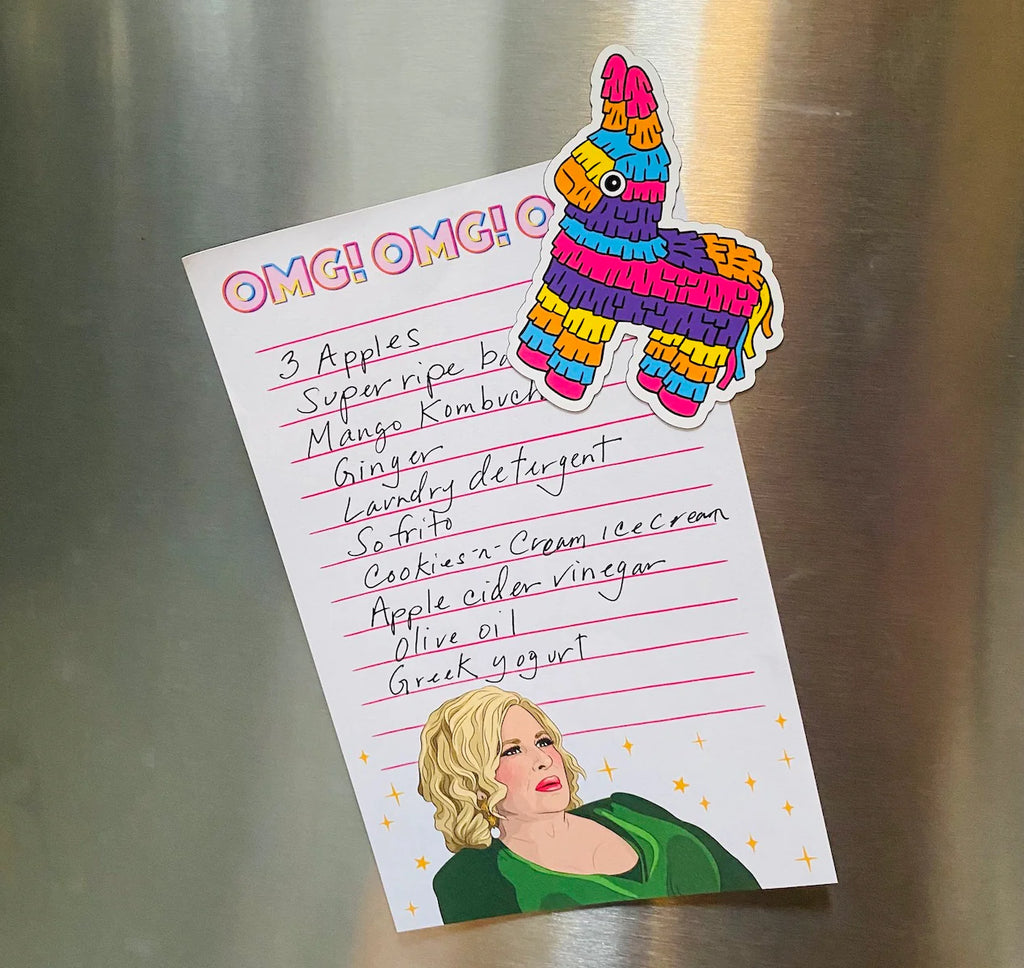 OMG! OMG! O
3 Apples
Super ripe ba
Mango Kombuch
Ginger
Laundry detergent
Sofrito
Cookies-n-Cream ice cream
Apple cider vinegar
Olive oil
Greek yogurt